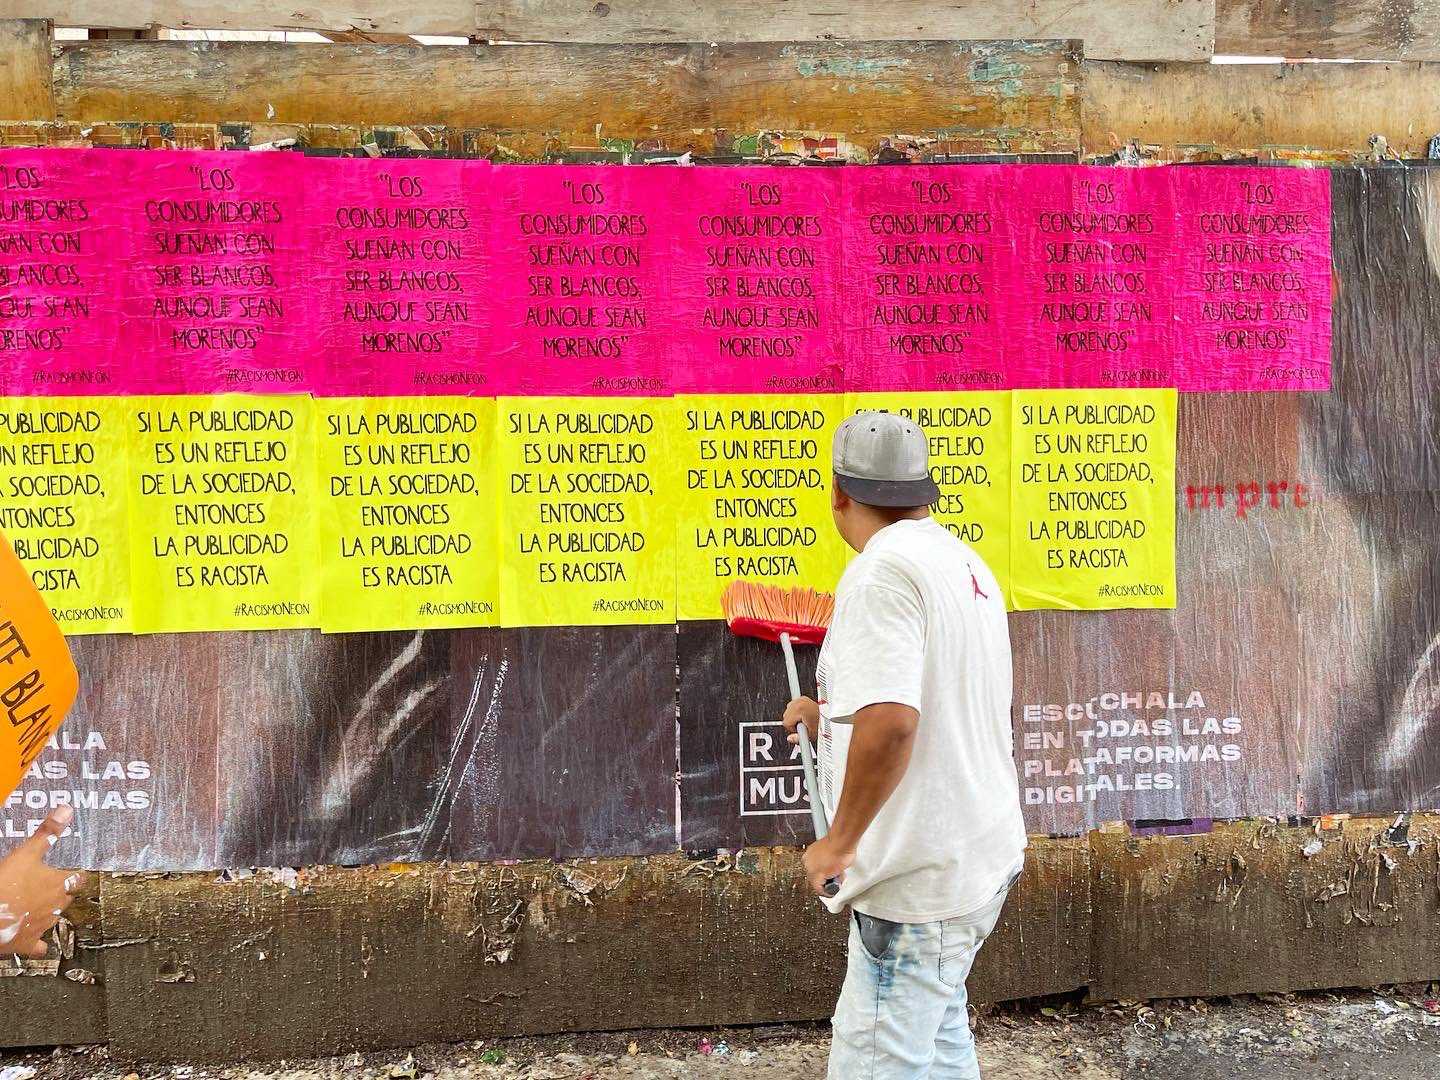 "LOS
SUMIDORES
ÑAN CON
BLANCOS,
QUE SEAN
ORENOS"
#RACISMONEON
"LOS
CONSUMIDORES
SUEÑAN CON
SER BLANCOS,
AUNQUE SEAN
MORENOS"
#RACISMONEON
"LOS
CONSUMIDORES
SUEÑAN CON
SER BLANCOS,
AUNQUE SEAN
MORENOS"
#RACISMONEON
"LOS
CONSUMIDORES
SUEÑAN CON
SER BLANCOS,
AUNQUE SEAN
MORENOS"
#RACISMONEON
"LOS
CONSUMIDORES
SUEÑAN CON
SER BLANCOS,
AUNQUE SEAN
MORENOS"
#RACISMONEON
"LOS
CONSUMIDORES
SUEÑAN CON
SER BLANCOS,
AUNQUE SEAN
MORENOS"
#RACISMONEON
"LOS
CONSUMIDORES
SUEÑAN CON
SER BLANCOS,
AUNQUE SEAN
MORENOS"
#RACISMONEON
"LOS
CONSUMIDORES
SUEÑAN CON
SER BLANCOS,
AUNQUE SEAN
MORENOS"
#RACISMONEON
PUBLICIDAD
UN REFLEJO
A SOCIEDAD,
NTONCES
UBLICIDAD
CISTA
RACISMONEON
SI LA PUBLICIDAD
ES UN REFLEJO
DE LA SOCIEDAD,
ENTONCES
LA PUBLICIDAD
ES RACISTA
#RACISMONEON
SI LA PUBLICIDAD
ES UN REFLEJO
DE LA SOCIEDAD,
ENTONCES
LA PUBLICIDAD
ES RACISTA
#RACISMONEON
SI LA PUBLICIDAD
ES UN REFLEJO
DE LA SOCIEDAD,
ENTONCES
LA PUBLICIDAD
ES RACISTA
#RACISMONEON
SI LA PUBLICIDAD
ES UN REFLEJO
DE LA SOCIEDAD,
ENTONCES
LA PUBLICIDAD
ES RACISTA
UBLICIDAD
REFLEJO
CIEDAD,
CES
DAD
SI LA PUBLICIDAD
ES UN REFLEJO
DE LA SOCIEDAD,
ENTONCES
LA PUBLICIDAD
ES RACISTA
#RACISMONEON
mpre
NTE BLAN
ALA
AS LAS
FORMAS
ALES.
RA
MUS
ESCÚCHALA
EN TODAS LAS
PLATAFORMAS
DIGITALES.